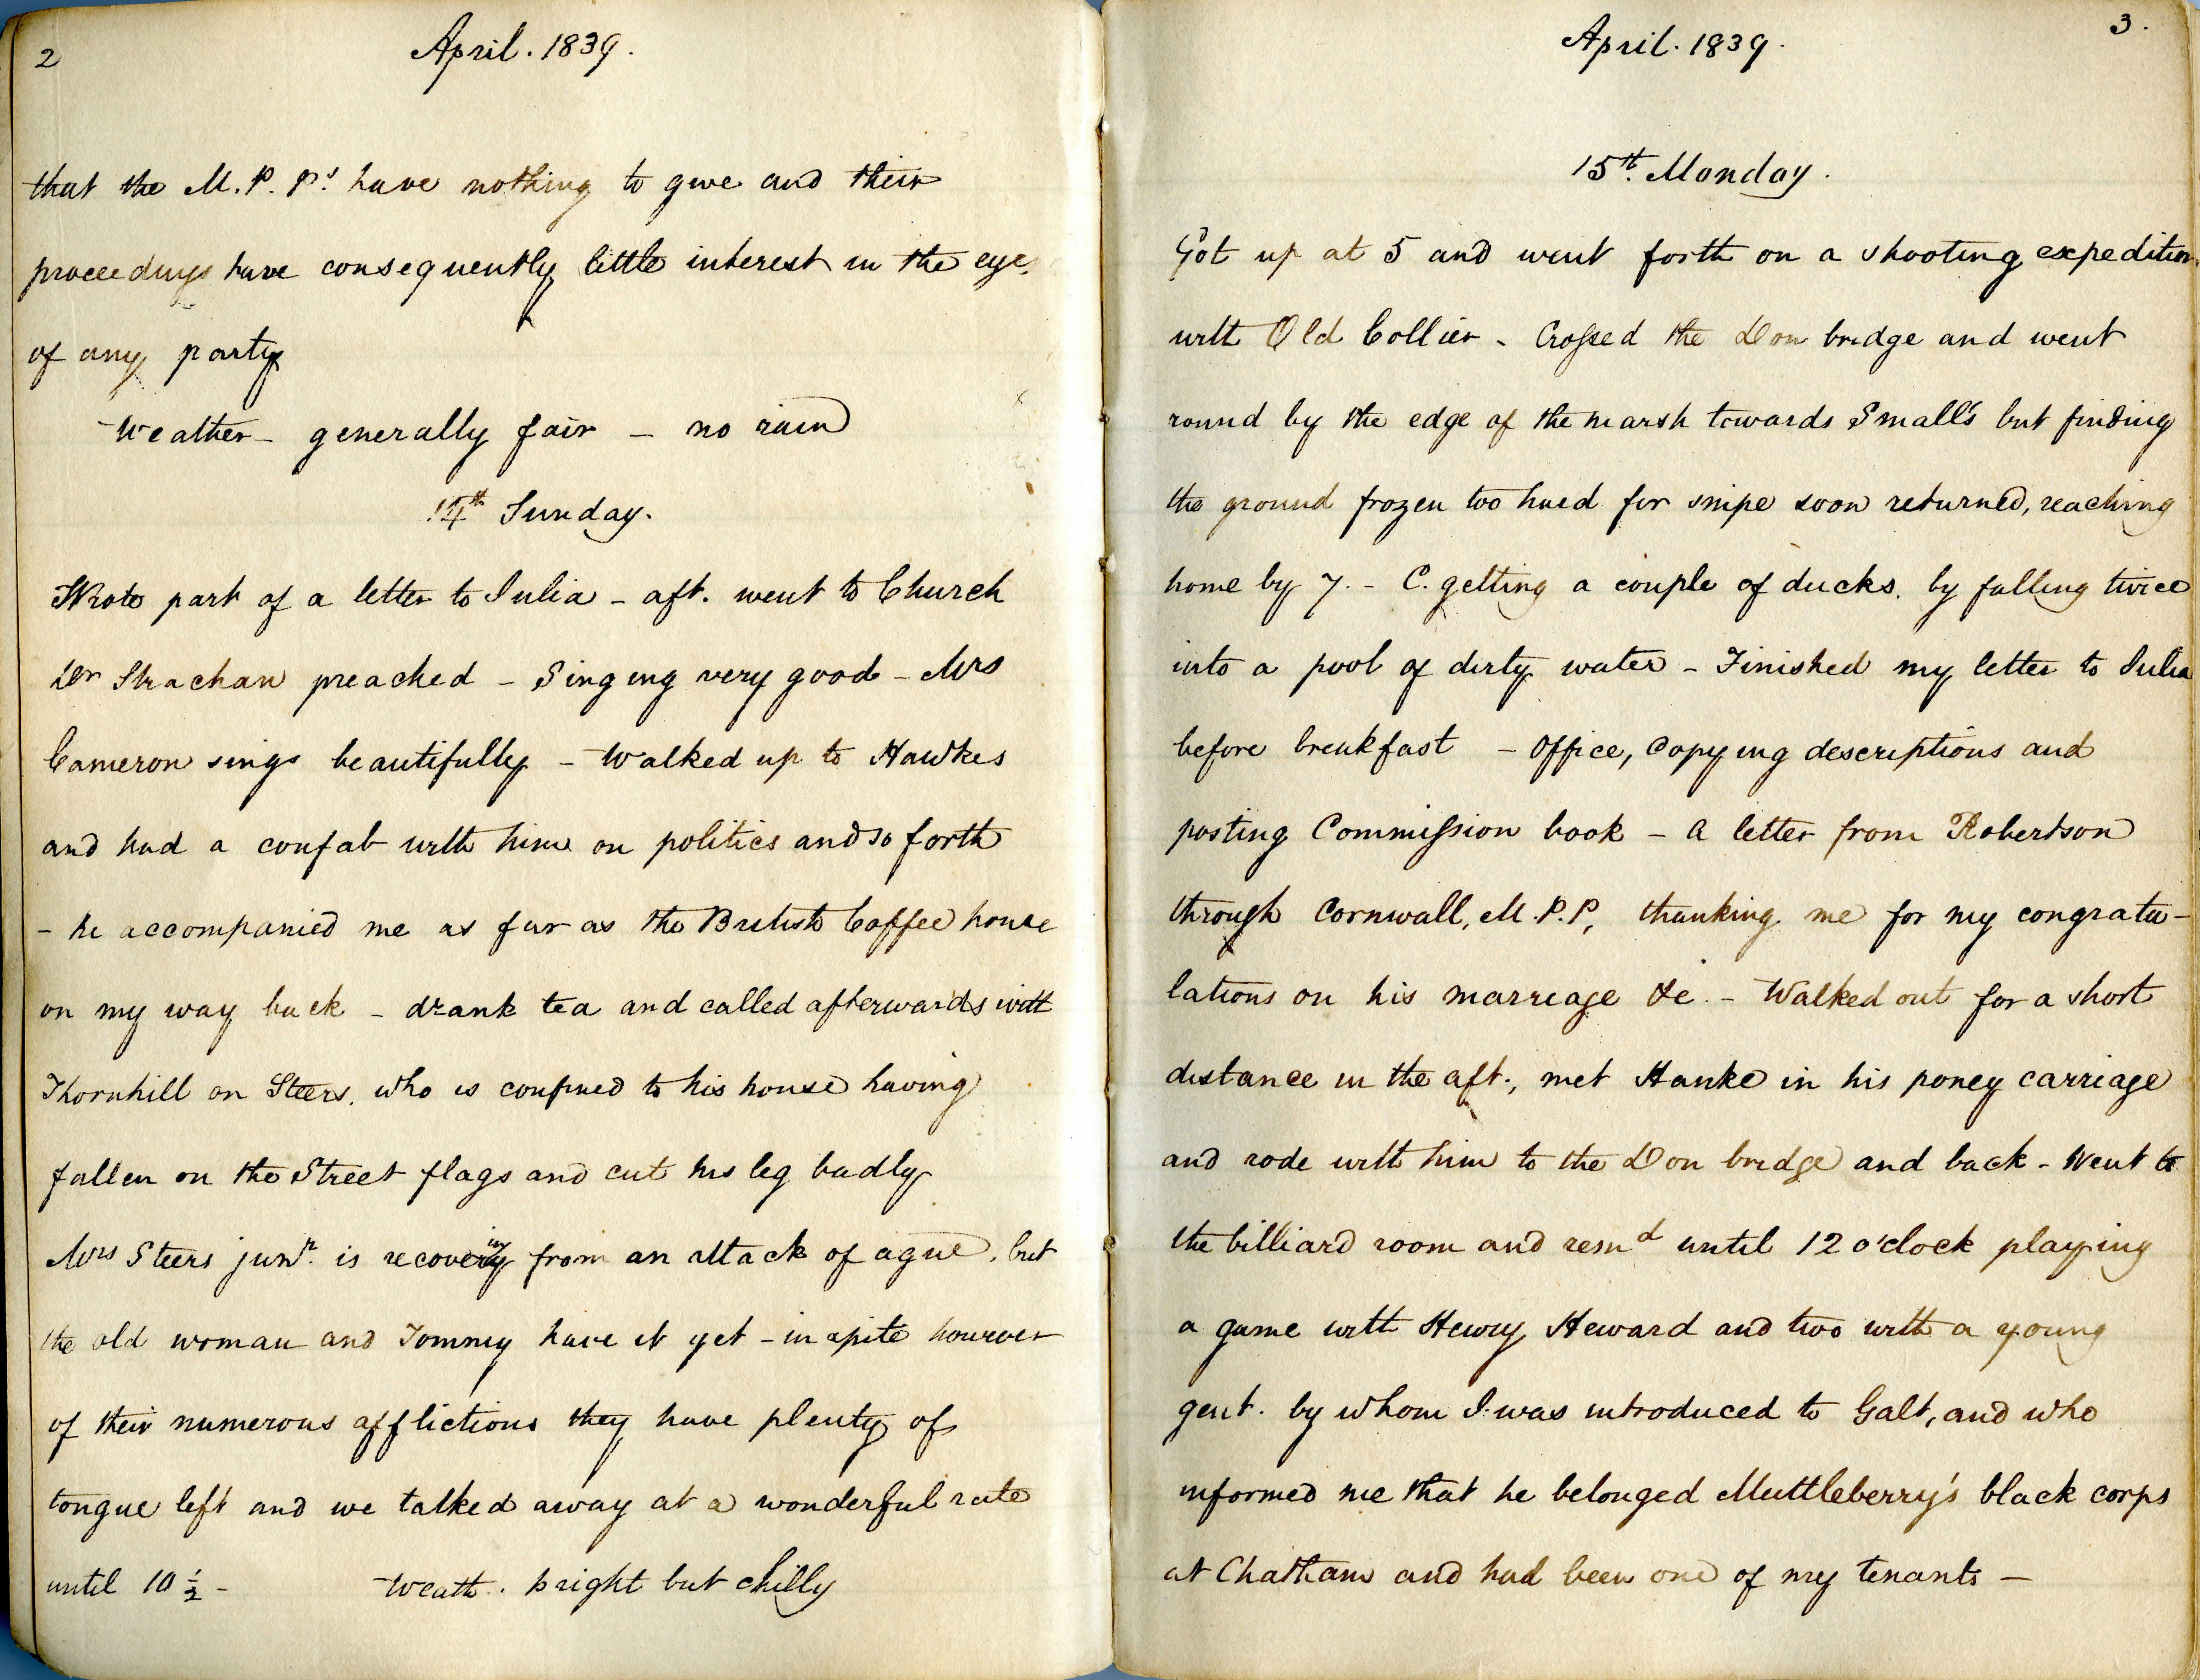 2
April. 1839.
that the M.P.P.s have nothing to give and their
proceedings have consequently little interest in the eyes
of any party
Weather - generally fair - no rain
14th Sunday.
Wrote part of a letter to Julia - aft. went to Church
Dr Strachan preached - Singing very good - Mrs
Cameron sings beautifully - Walked up to Hawkes
and had a confab with him on politics and so forth
- he accompanied me as far as the British Coffee house
on my way back - drank tea and called afterwards with
Thornhill on Steers, who is confined to his house having
fallen on the Street flags and cut his leg badly
Mrs Steers junr. is recovering from an attack of ague, but
the old woman and Tommy have it yet - in spite however
of their numerous afflictions they have plenty of
tongue left and we talked away at a wonderful rate
until 10 1/2 - Weath. bright but chilly
April. 1839.
3.
15th. Monday.
Got up at 5 and went forth on a shooting expedition
with Old Collier - Crossed the Don bridge and went
round by the edge of the marsh towards Small's but finding
the ground frozen too hard for snipe soon returned, reaching
home by 7. - C. getting a couple of ducks. by falling twice
into a pool of dirty water - Finished my letter to Julia
before breakfast - Office, Copying descriptions and
posting Commission book - A letter from Robertson
through Cornwall, M.P.P, thanking me for my congratu-
lations on his marriage &c. - Walked out for a short
distance in the aft., met Hawke in his poney carriage
and rode with him to the Don bridge and back - Went to
the billiard room and remd until 12 o'clock playing
a game with Henry Heward and two with a young
gent. by whom I was introduced to Galt, and who
informed me that he belonged Muttleberry's black corps
at Chatham and had been one of my tenants -